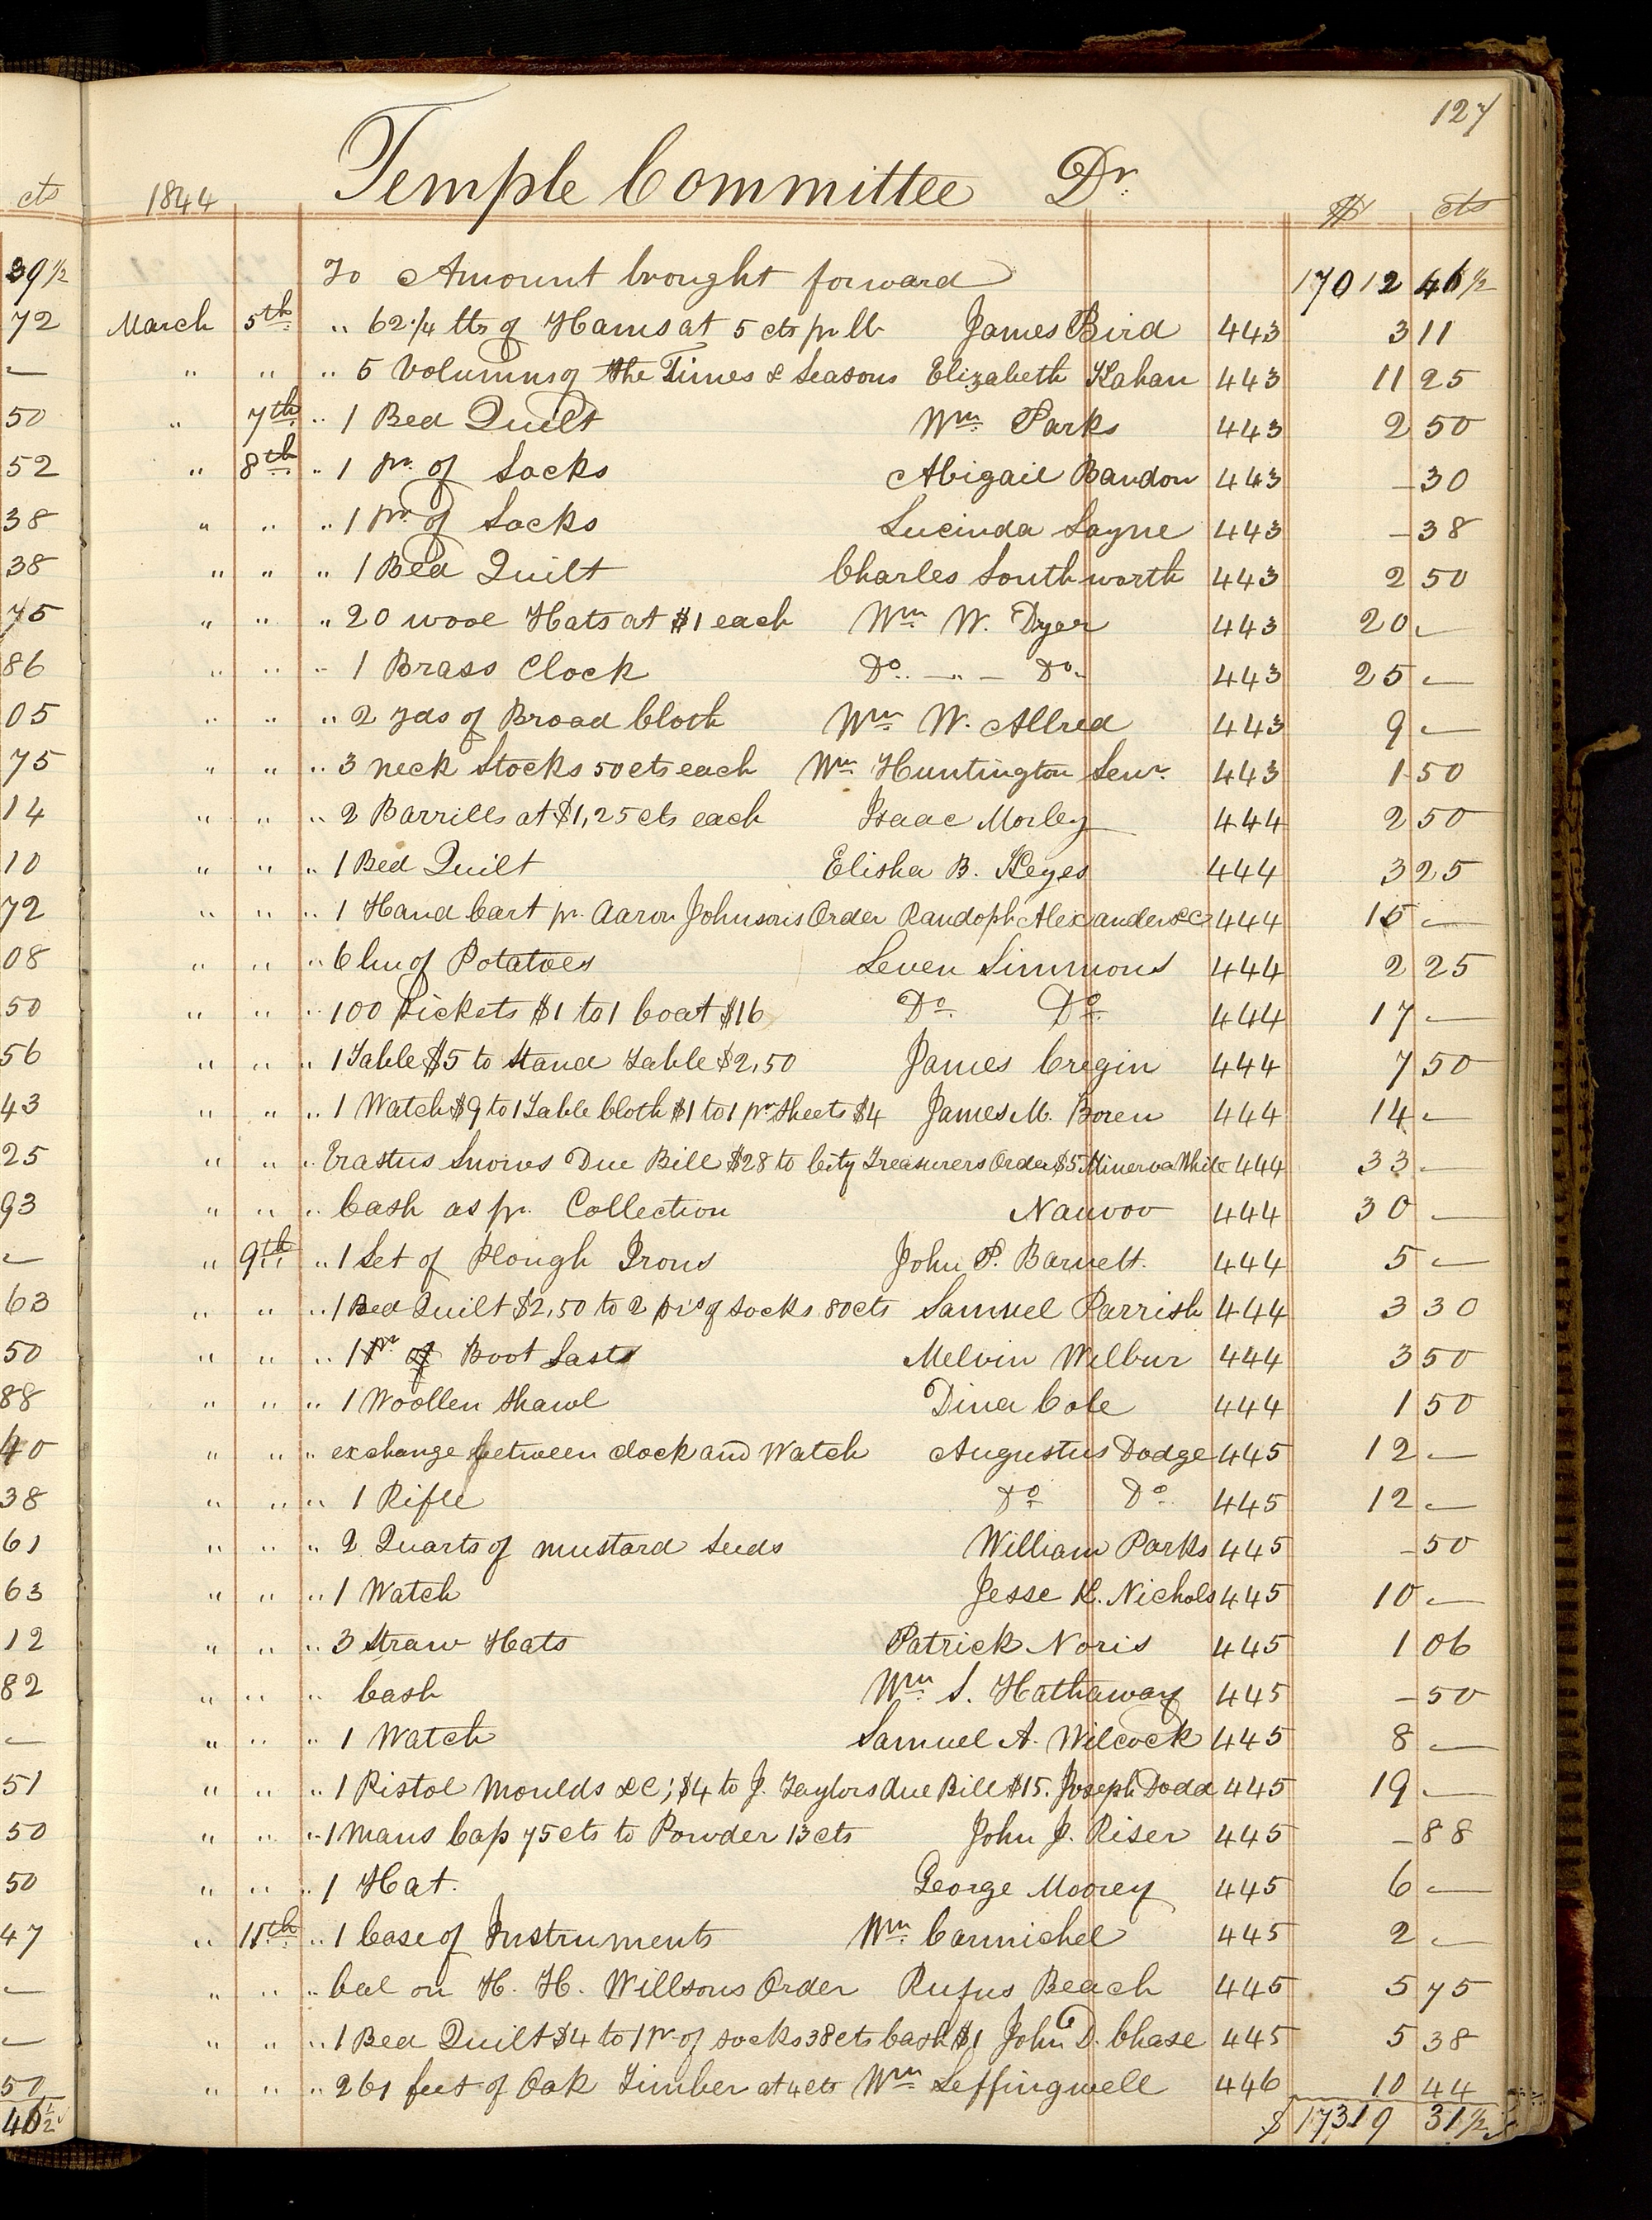 127
1844 Temple Committee Dr.
$ cts
To Amount brought forward 17012 46 1/2
March 5th " 62 1/4 lbs of Hams at 5 cts pr lb James Bird 443 3 11
" " " 5 Volumns of the Times & Seasons Elizabeth Kahan 443 11 25
" 7th " 1 Bed Quilt Wm Parks 443 2 50
" 8th " 1 pr. of Socks Abigail Bandon 443 – 30
" " " 1 pr of Socks Lucinda Sayne 443 – 38
" " " 1 Bed Quilt Charles Southworth 443 2 50
" " " 20 wool Hats at $1 each Wm W. Dyer 443 20 —
" " " 1 Brass Clock Do. — " — Do. 443 25 —
" " " 2 yds of Broad Cloth Wm W. Allred 443 9 —
" " " 3 neck Stocks 50 cts each Wm Huntington Senr. 443 1 50
" " " 2 Barrills at $1,25 cts each Isaac Morley 444 2 50
" " " 1 Bed Quilt Elisha B. Keyes 444 3 25
" " " 1 Hand Cart pr. Aaron Johnsons Order Randoph Alexander &c 444 15 —
" " " 6 bu of Potatoes Leven Simmons 444 2 25
" " " 100 Pickets $1 to 1 Coat $16 Do. Do. 444 17 —
" " " 1 Table $5 to Stand Table $2,50 James Cregin 444 7 50
" " " 1 Watch $9 to 1 Table Cloth $1 to 1 pr Sheets $4 James M. Boren 444 14 —
" " " Erastus Snows Due Bill $28 to City Treasurers Order $5 Minerva White 444 33 —
" " " Cash as pr. Collection Nauvoo 444 30 —
" 9th " 1 Set of Plough Irons John P. Barnett. 444 5 —
" " " 1 Bed Quilt $2,50 to 2 prs of Socks 80 cts Samuel Parrish 444 3 30
" " " 1 Pr of Boot Lasts Melvin Wilbur 444 3 50
" " " 1 Woollen Shawl Dina Cole 444 1 50
" " " exchange between clock and Watch Augustus Dodge 445 12 —
" " " 1 Rifle Do Do. 445 12 —
" " " 2 Quarts of mustard Seeds William Parks 445 – 50
" " " 1 Watch Jesse K. Nichols 445 10 —
" " " 3 Straw Hats Patrick Noris 445 1 06
" " " Cash Wm S. Hathaway 445 – 50
" " " 1 Watch Samuel A. Wilcock 445 8 —
" " " 1 Pistol Moulds &c; $4 to J. Taylors due Bill $15. Joseph Dodd 445 19 —
" " " 1 Mans Cap 75 cts to Powder 13 cts John J. Riser 445 – 88
" " " 1 Hat. George Moorey 445 6 —
" 11th " 1 Case of Instruments Wm Carmichel 445 2 —
" " " bal on H. H. Willsons Order Rufus Beach 445 5 75
" " " 1 Bed Quilt $4 to 1 pr of socks 38 cts Cash $1 John D. Chase 445 5 38
" " " 261 feet of Oak Timber at 4 cts Wm Leffingwell 446 10 44
$ 17319 31 1/2
cts
39 1/2
72
—
50
52
38
38
75
86
05
75
14
10
72
08
50
56
43
25
93
—
63
50
88
40
38
61
63
12
82
—
51
50
50
47
—
—
50
46 1/2